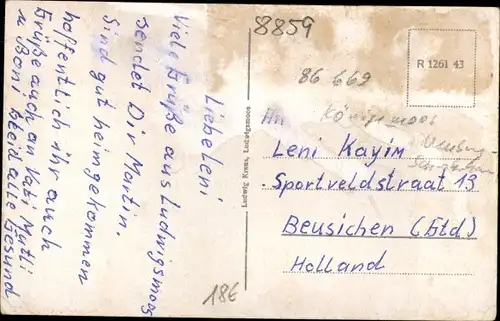 8859
R 1261 43
86 669
Liebe Leni
Viele Grüße aus Ludwigsmoos
sendet Dir Martin.
Sind gut heimgekommen
hoffentlich ihr auch
Grüße auch an Vati Mutti
u Boni bleid alle Gesund
Ludwig Kraus, Ludwigsmoos
An
Königsmoos
Leni Kayim
Sportveldstraat 13
Beusichen (Gtd)
Holland
18E